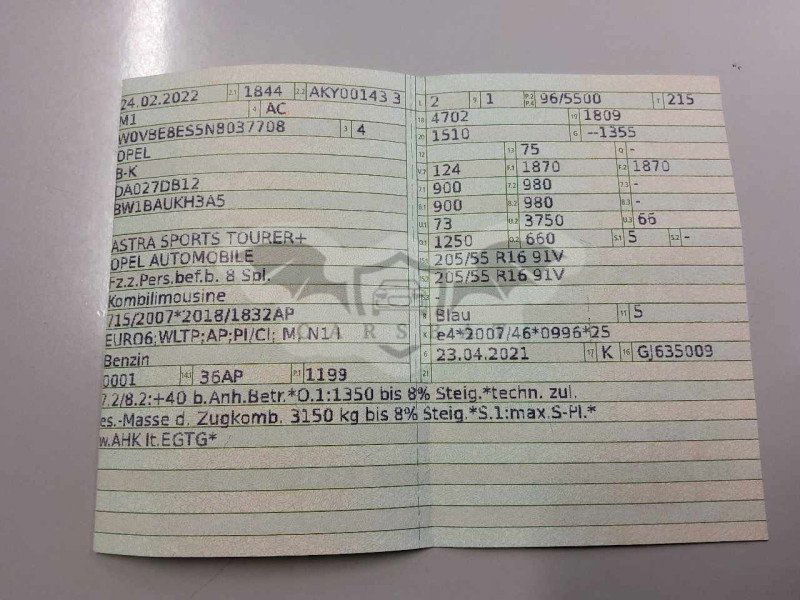 24.02.2022 2.1 1844 2.2 AKY00143 3
M1 4 AC
W0VBE8ES5N8037708 3 4
OPEL
B-K
DA027DB12
BW1BAUKH3A5
ASTRA SPORTS TOURER+
OPEL AUTOMOBILE
Fz.z.Pers.bef.b. 8 Spl.
Kombilimousine
715/2007*2018/1832AP
EURO6;WLTP;AP;PI/CI; M,CN1I
Benzin
0001 14.1 36AP P.1 1199
7.2/8.2:+40 b.Anh.Betr.*O.1:1350 bis 8% Steig.*techn. zul.
es.-Masse d. Zugkomb. 3150 kg bis 8% Steig.*S.1:max.S-Pl.*
w.AHK lt.EGTG*
L 2 9 1 P.2 P.4 96/5500 T 215
18 4702 19 1809
20 1510 G --1355
12 13 75 Q -
V.7 124 F.1 1870 F.2 1870
7.1 900 7.2 980 7.3 -
8.1 900 8.2 980 8.3 -
U.1 73 U.2 3750 U.3 66
O.1 1250 O.2 660 S.1 5 S.2 -
15.1 205/55 R16 91V
15.2 205/55 R16 91V
15.3 -
R Blau 11 5
K e4*2007/46*0996*25
6 23.04.2021 17 K 16 GJ635009
21
CARS